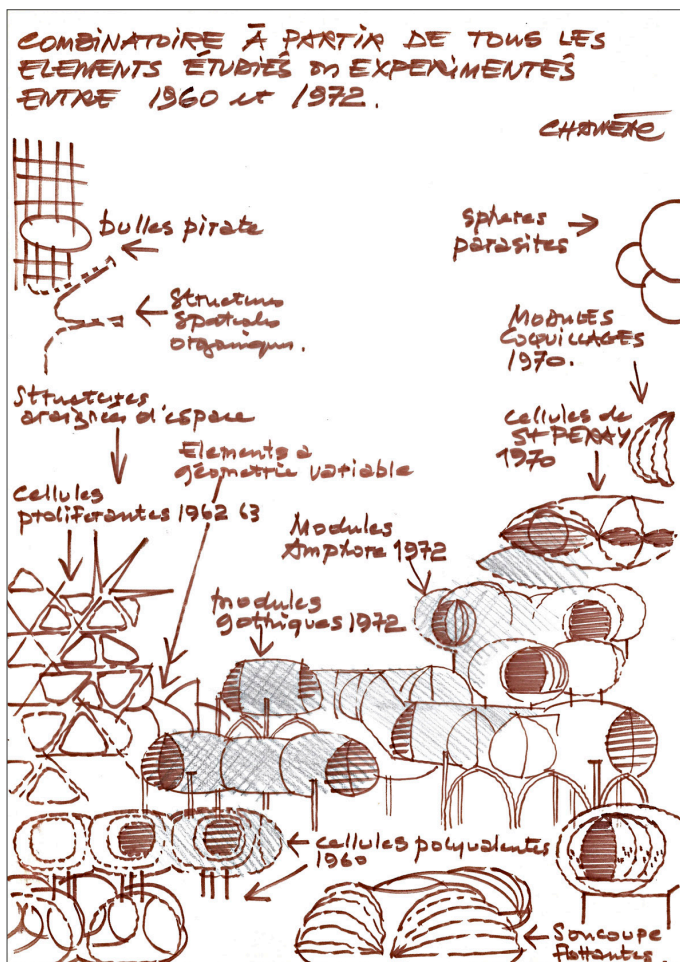 COMBINATOIRE À PARTIR DE TOUS LES
ELEMENTS ÉTUDIÉS OU EXPERIMENTÉS
ENTRE 1960 et 1972.
CHANÉAC
bulles pirate
spheres
parasites
Structures
spatiales
organiques.
MODULES
COQUILLAGES
1970.
Structures
araignées d'espace
cellules de
St PERAY
1970
Elements a
géometrie variable
cellules
proliferantes 1962 63
Modules
Amphore 1972
modules
gothiques 1972
cellules polyvalentes
1960
Soucoupe
flottantes.